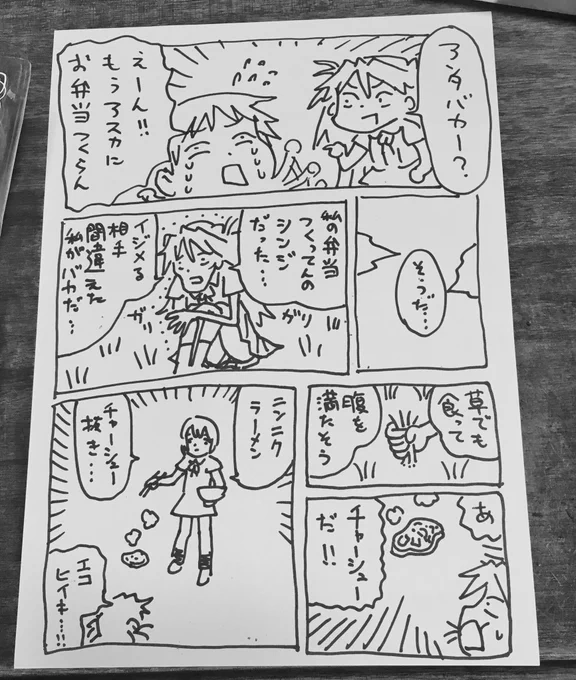 アンタバカー?
えーん!!
もうアスカに
お弁当つくらん
そうだ…
私の弁当
つくってんの
シンジ
だった…
ガリ
ガリ
イジメる
相手
間違えた
私がバカだ…
草でも
食って
腹を
満たそう
あ
チャーシュー
だ!!
ニンニク
ラーメン
チャーシュー
抜き…
エコ
ヒイキ…!!